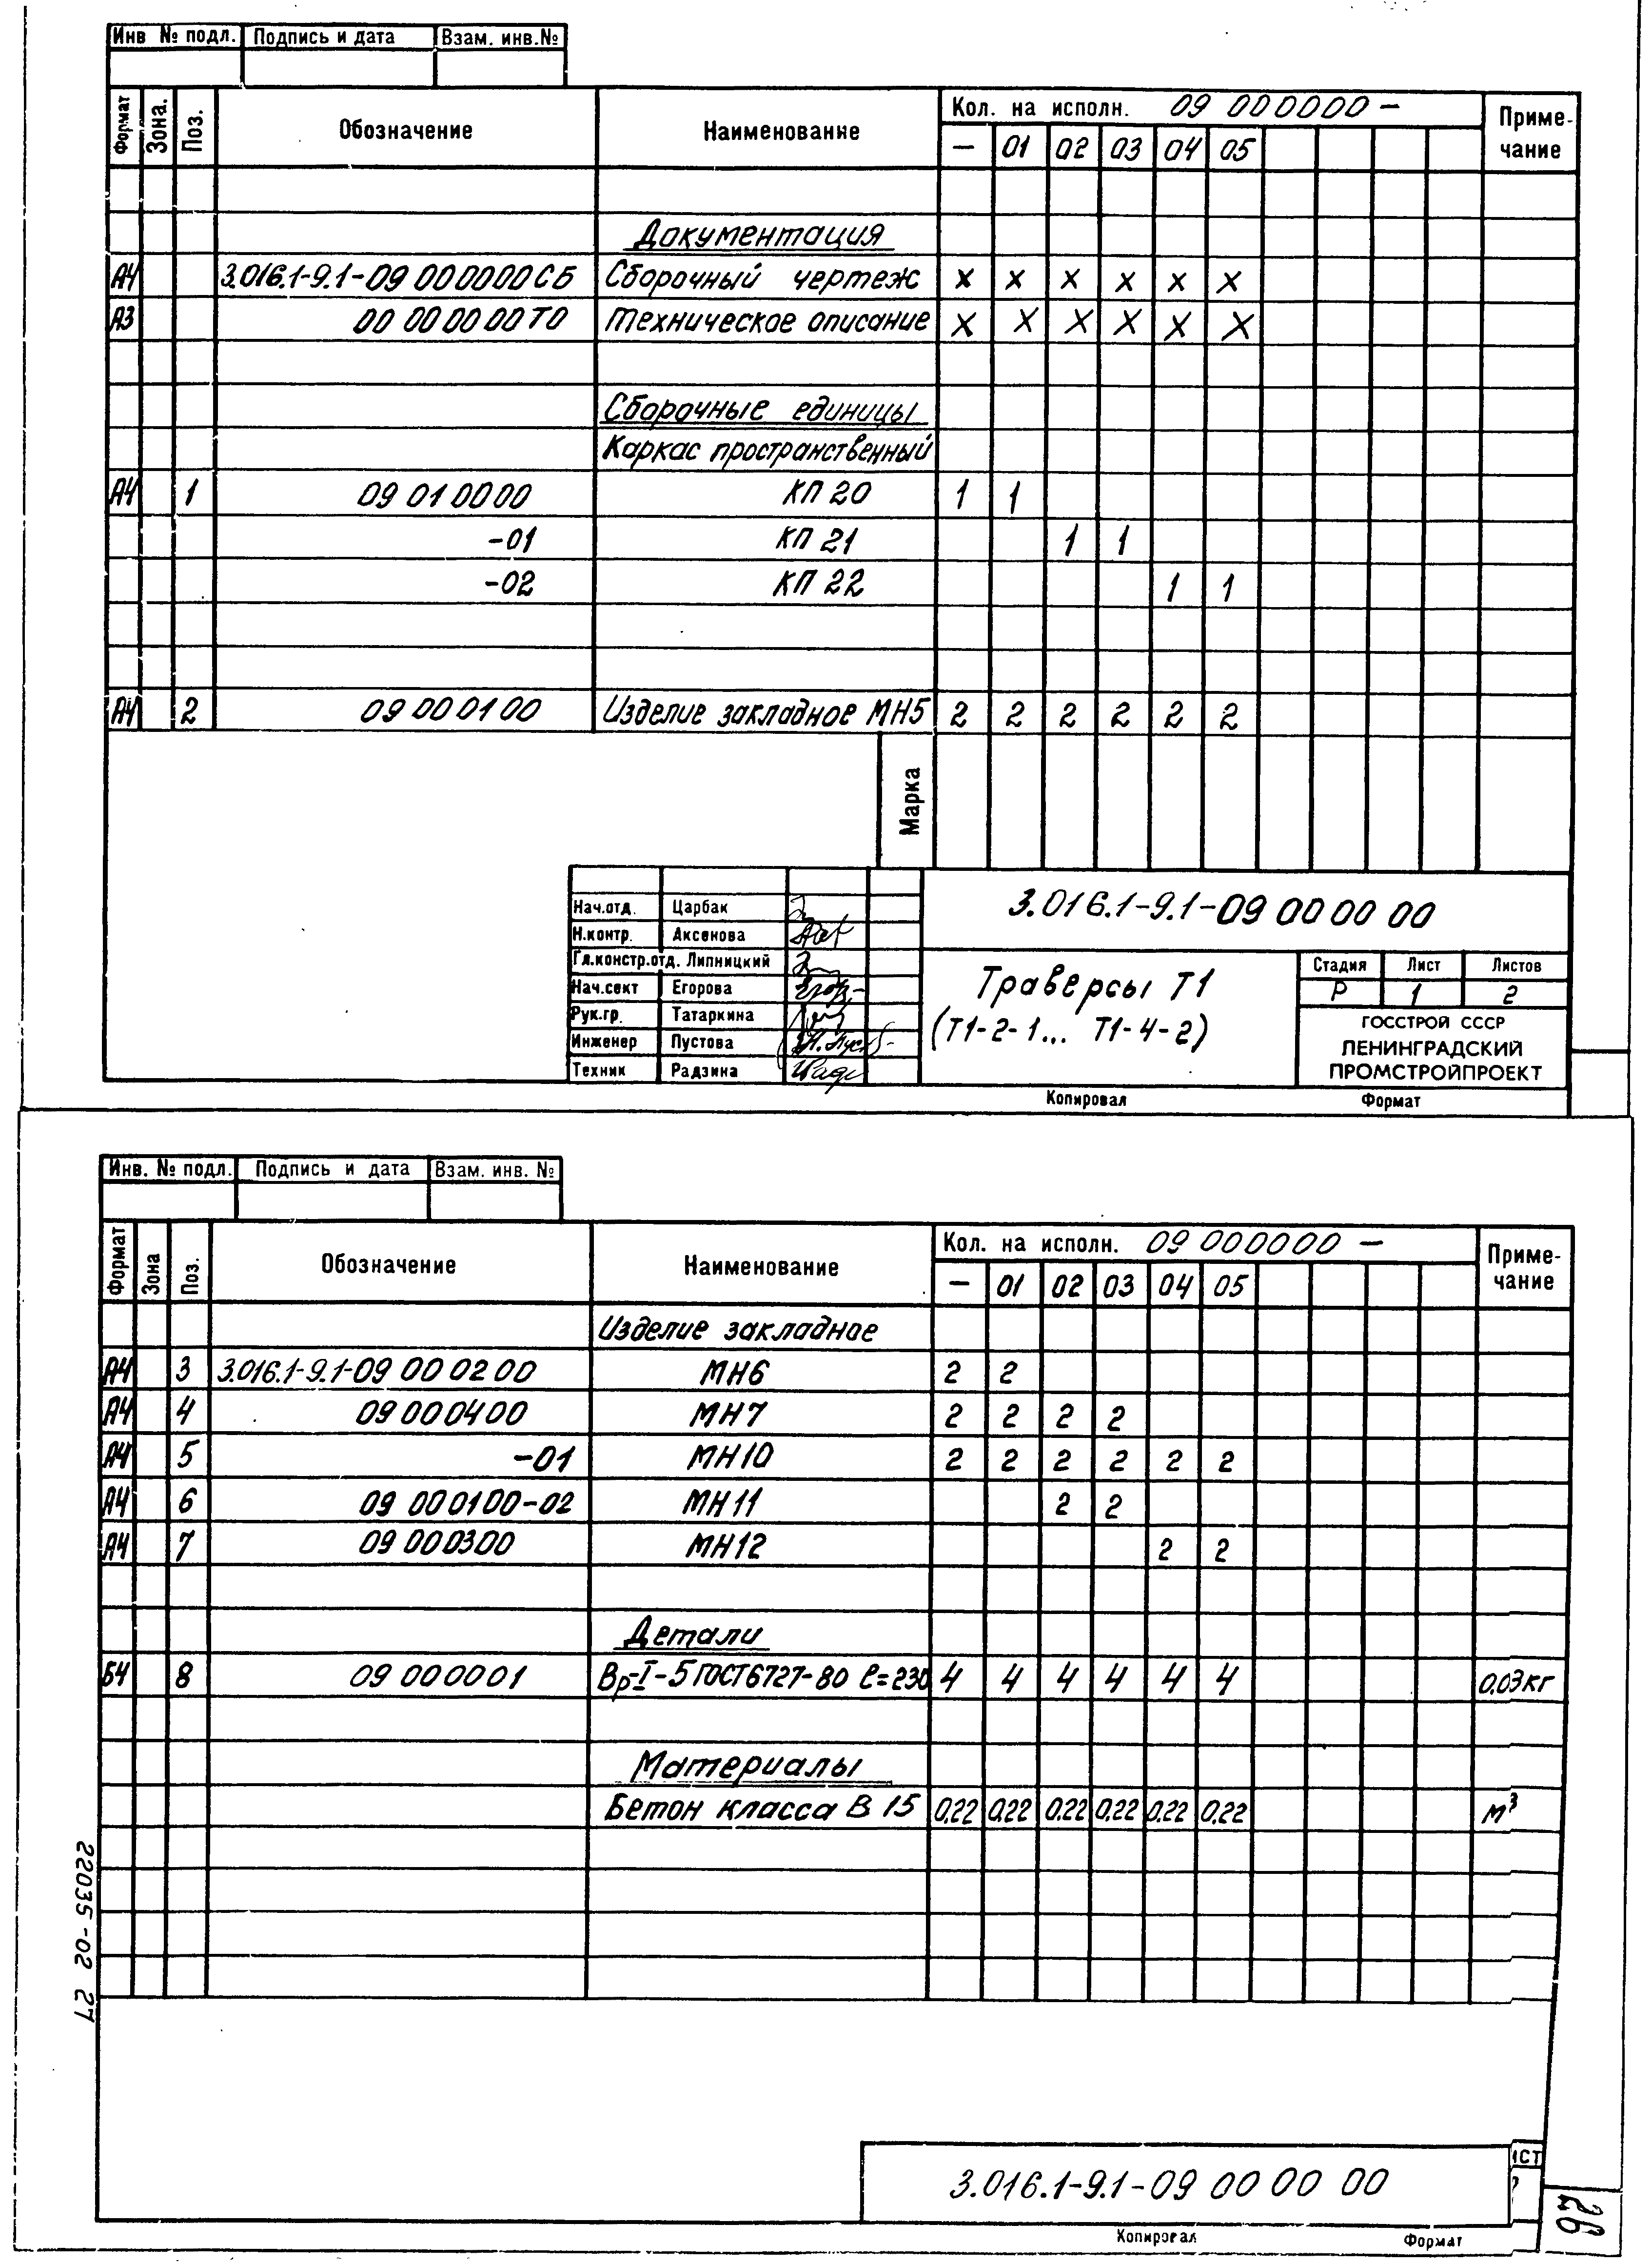 Инв № подл. Подпись и дата Взам. инв.№
Формат Зона. Поз. Обозначение Наименование Кол. на исполн. 09 000000 – Приме-
чание
– 01 02 03 04 05
Документация
А4 3.016.1-9.1-09 000000СБ Сборочный чертеж х х х х х х
А3 00 00 00 00 ТО Техническое описание х х х х х х
Сборочные единицы
Каркас пространственный
А4 1 09 01 00 00 КП 20 1 1
-01 КП 21 1 1
-02 КП 22 1 1
А4 2 09 00 01 00 Изделие закладное МН5 2 2 2 2 2 2
Марка
3.016.1-9.1-09 00 00 00
Нач.отд. Царбак
Н.контр. Аксенова
Гл.констр.отд. Липницкий
Нач.сект Егорова
Рук.гр. Татаркина
Инженер Пустова
Техник Радзина
Траверсы Т1
(Т1-2-1... Т1-4-2)
Стадия Лист Листов
Р 1 2
ГОССТРОЙ СССР
ЛЕНИНГРАДСКИЙ
ПРОМСТРОЙПРОЕКТ
Копировал Формат
Инв. № подл. Подпись и дата Взам. инв. №
Формат Зона Поз. Обозначение Наименование Кол. на исполн. 09 000000 – Приме-
чание
– 01 02 03 04 05
Изделие закладное
А4 3 3.016.1-9.1-09 00 02 00 МН6 2 2
А4 4 09 00 04 00 МН7 2 2 2 2
А4 5 -01 МН10 2 2 2 2 2 2
А4 6 09 00 01 00-02 МН11 2 2
А4 7 09 00 03 00 МН12 2 2
Детали
Б4 8 09 00 00 01 Вр-I-5 ГОСТ6727-80 ℓ=230 4 4 4 4 4 4 0,03кг
Материалы
Бетон класса В 15 0,22 0,22 0,22 0,22 0,22 0,22 м³
22035-02 27
3.016.1-9.1-09 00 00 00
Копировал Формат
26